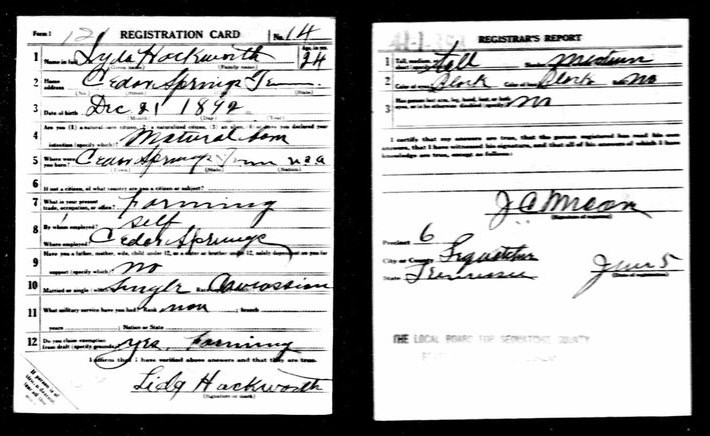 Form 1 REGISTRATION CARD No. 14
1 Name in full Lyda Hackworth Age, in yrs. 24
(Given name) (Family name)
2 Home address Cedar Springs Tenn.
(No.) (Street) (State)
3 Date of birth Dec 21 1892
(Month) (Day) (Year)
4 Are you (1) a natural-born citizen, (2) a naturalized citizen, (3) an alien, (4) declared your
intention (specify which)? Natural born
5 Where were you born? Cedar Springs Tenn usa
(Town) (State) (Nation)
6 If not a citizen, of what country are you a citizen or subject?
7 What is your present trade, occupation, or office? Farming
8 By whom employed? Self
Where employed? Cedar Springs
9 Have you a father, mother, wife, child under 12, or a sister or brother under 12, solely dependent on you for
support (specify which)? no
10 Married or single (which)? Single Race Caucassian
11 What military service have you had? Rank non ; branch
years ; Nation or State
12 Do you claim exemption from draft (specify grounds)? yes, Farming
I affirm that I have verified above answers and that they are true.
Lida Hackworth
(Signature or mark)
REGISTRAR'S REPORT
1 Tall, medium, or short (specify which)? tall Slender, medium
2 Color of eyes Black Color of hair Black No
3 Has person lost arm, leg, hand, foot, or both
eyes, or is he otherwise disabled (specify)? No
I certify that my answers are true, that the person registered has read his own
answers, that I have witnessed his signature, and that all of his answers of which I have
knowledge are true, except as follows:
(Signature of registrar)
Precinct 6
City or County Sequatchie
State Tennessee June 5
(Date of registration)
THE LOCAL BOARD FOR SEQUATCHIE COUNTY